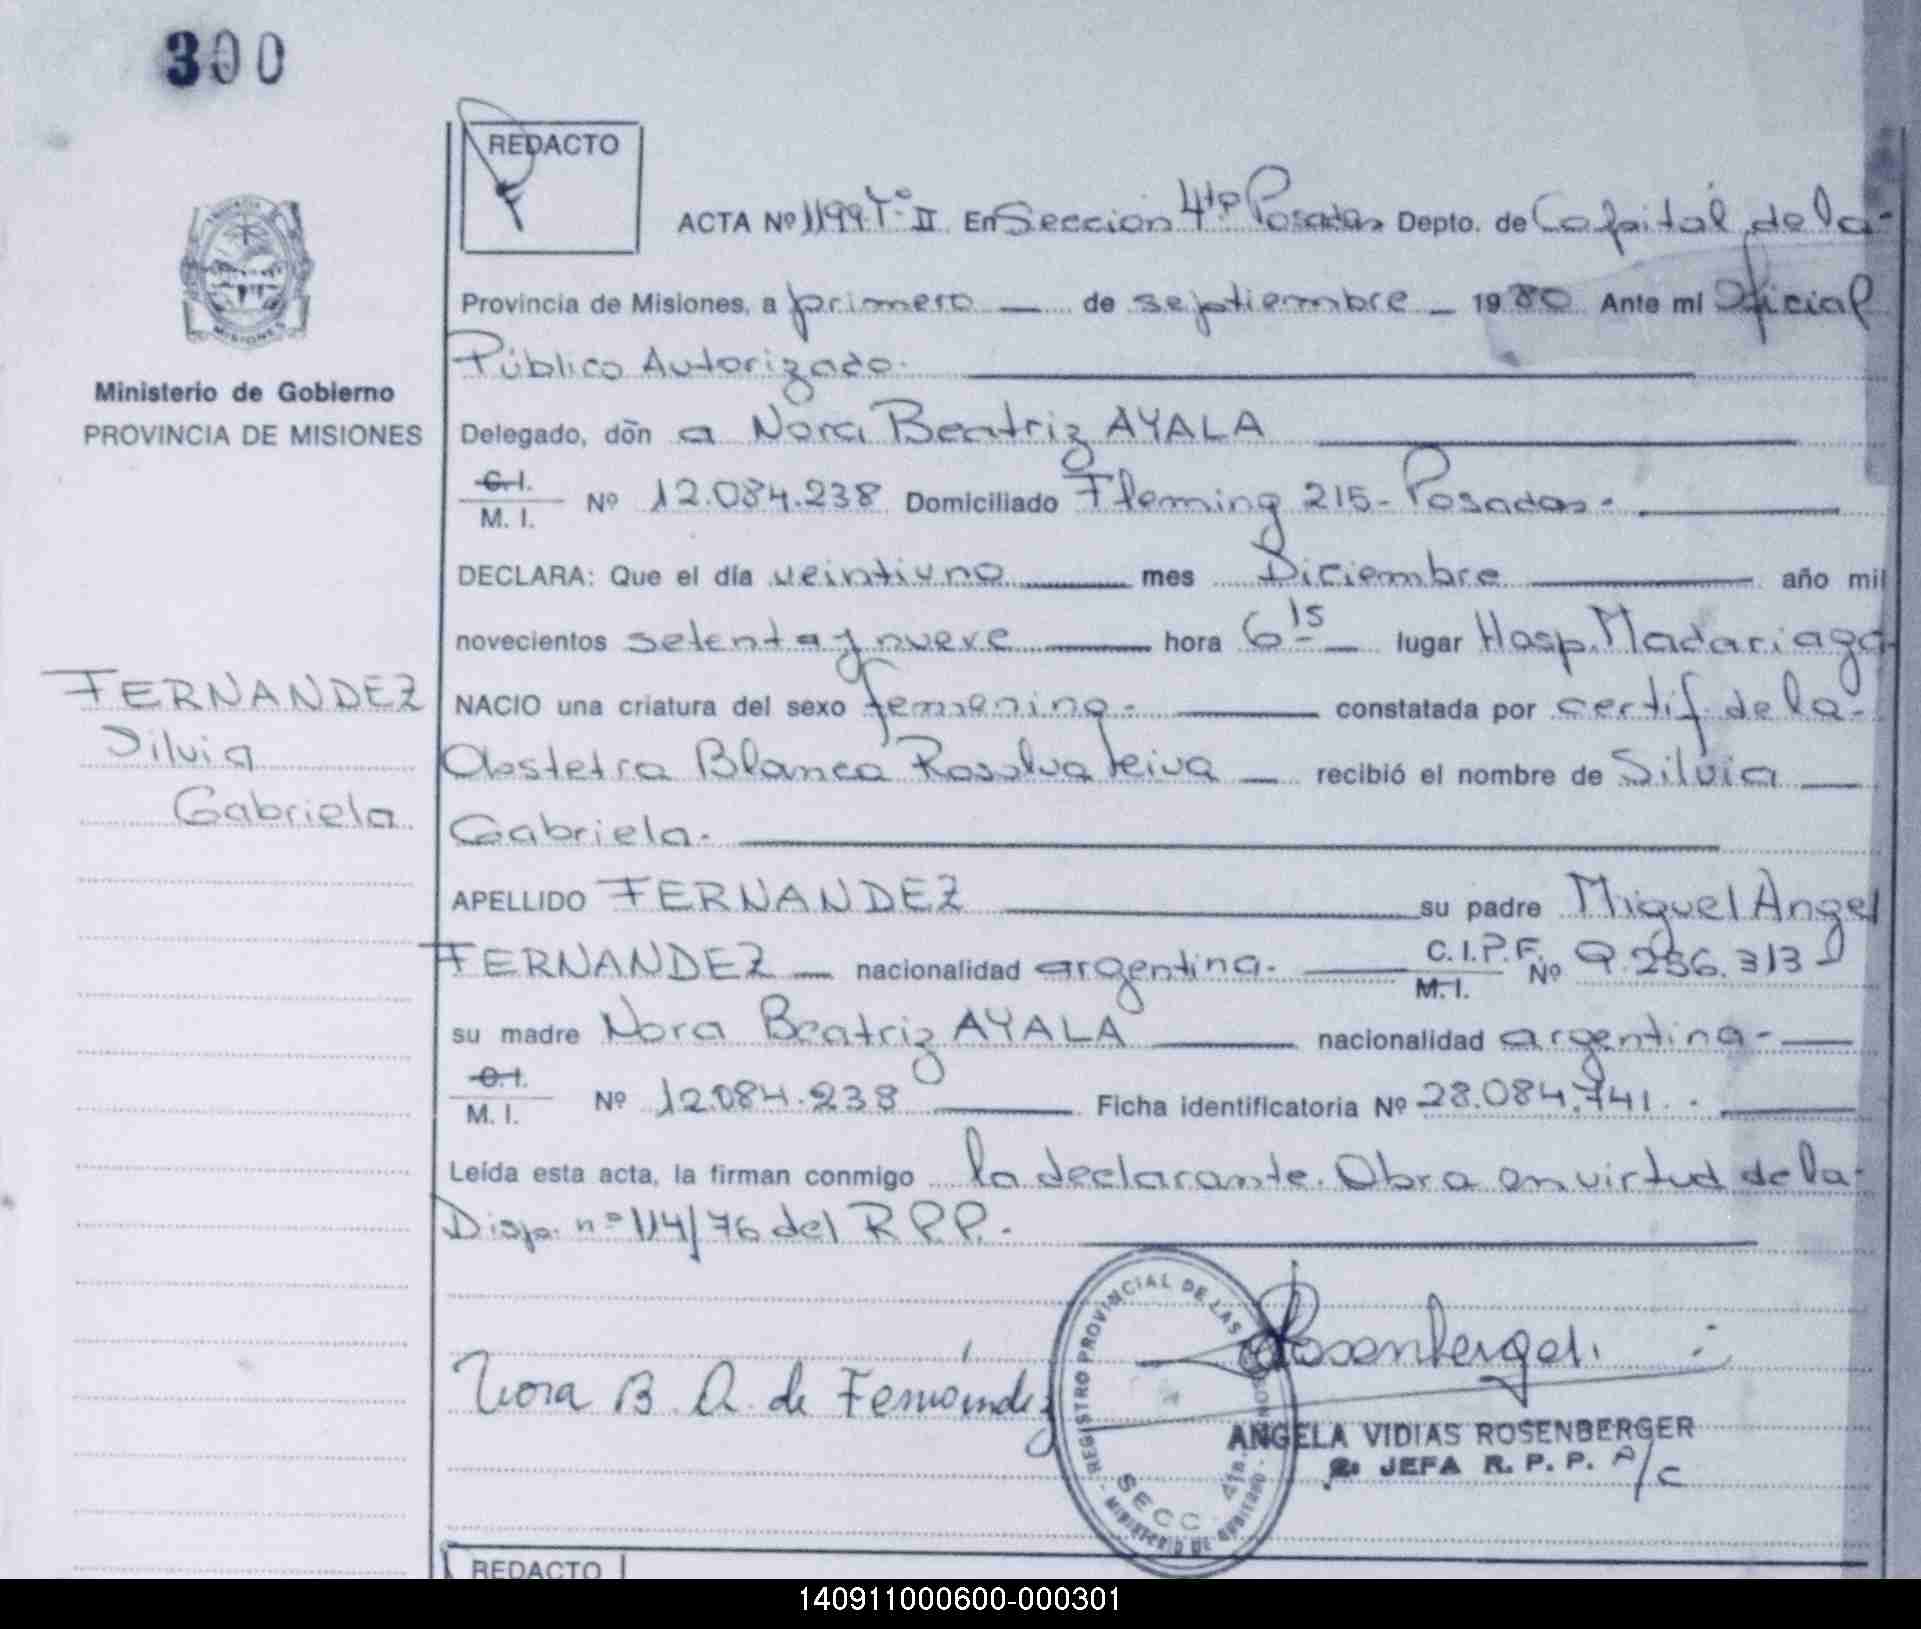 300
REDACTO
ACTA Nº 1199 Tº II En Sección 4ta Posadas Depto. de Capital de la-
Provincia de Misiones, a primero — de septiembre — 1980 Ante mi Oficial
Público Autorizado.
Ministerio de Gobierno
PROVINCIA DE MISIONES
Delegado, don a Nora Beatriz AYALA
C.I.
M. I. Nº 12.084.238 Domiciliado Fleming 215 - Posadas -
DECLARA: Que el día veintiuno mes Diciembre año mil
novecientos setenta y nueve hora 6 15 lugar Hosp. Madariaga
FERNANDEZ
Silvia
Gabriela
NACIO una criatura del sexo femenino - constatada por certif. de la-
Obstetra Blanca Rosalva Leiva — recibió el nombre de Silvia —
Gabriela.
APELLIDO FERNANDEZ su padre Miguel Angel
FERNANDEZ — nacionalidad argentina. C.I.P.F.
M.I. Nº 9.256.313
su madre Nora Beatriz AYALA nacionalidad argentina -
C.I.
M. I. Nº 12.084.238 Ficha identificatoria Nº 28.084.741. -
Leída esta acta, la firman conmigo la declarante. Obra en virtud de la-
Disp. nº 114/76 del R.P.P. -
Nora B. A. de Fernández
Rosenberger
REGISTRO PROVINCIAL DE LAS PERSONAS
SECC. 4ta.
MINISTERIO DE GOBIERNO
ANGELA VIDIAS ROSENBERGER
JEFA R. P. P. A/C
REDACTO
140911000600-000301